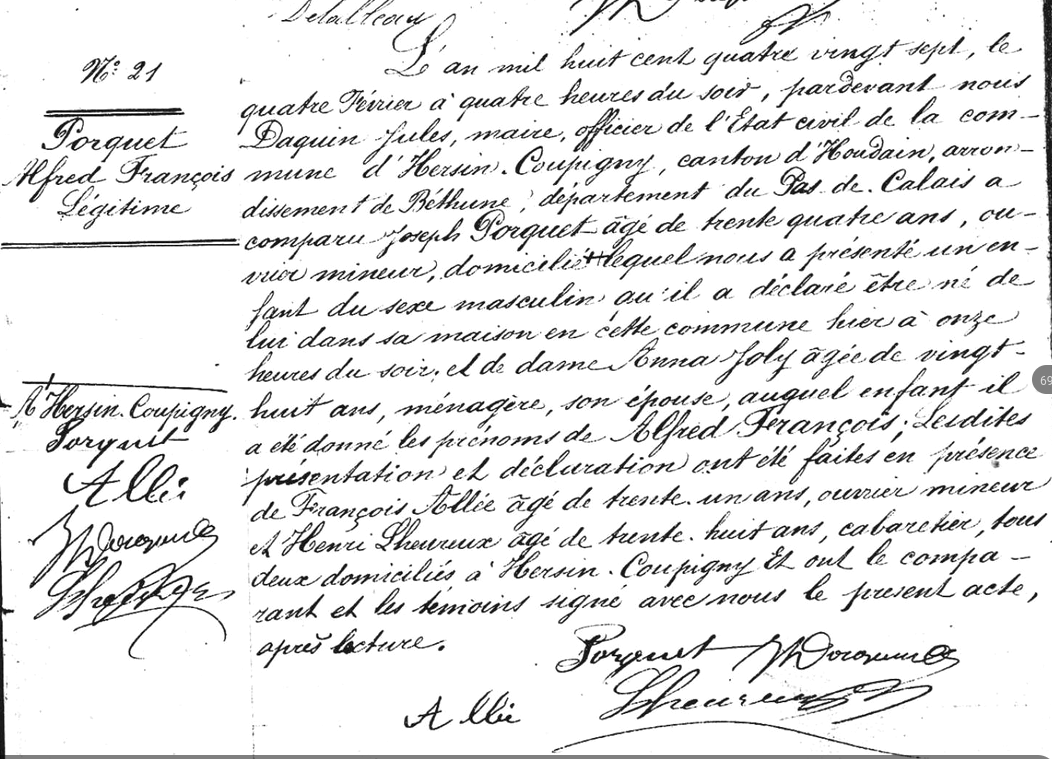 Delalleau
N° 21
Porquet
Alfred François
Légitime
L'an mil huit cent quatre vingt sept, le
quatre Février à quatre heures du soir, pardevant nous
Daquin Jules, maire, officier de l'Etat civil de la com-
mune d'Hersin-Coupigny, canton d'Houdain, arron-
dissement de Béthune, département du Pas-de-Calais a
comparu Joseph Porquet âgé de trente quatre ans, ou-
vrier mineur, domicilié lequel nous a présenté un en-
fant du sexe masculin qu'il a déclaré être né de
lui dans sa maison en cette commune hier à onze
heures du soir, et de dame Anna Joly âgée de vingt-
huit ans, ménagère, son épouse, auquel enfant il
a été donné les prénoms de Alfred François; Lesdites
présentation et déclaration ont été faites en présence
de François Allée âgé de trente-un ans, ouvrier mineur
et Henri Lheureux âgé de trente-huit ans, cabaretier, tous
deux domiciliés à Hersin-Coupigny Et ont le compa-
rant et les témoins signé avec nous le present acte,
après lecture.
A Hersin-Coupigny.
Porquet
Allée
Porquet
Lheureux
Allée
69